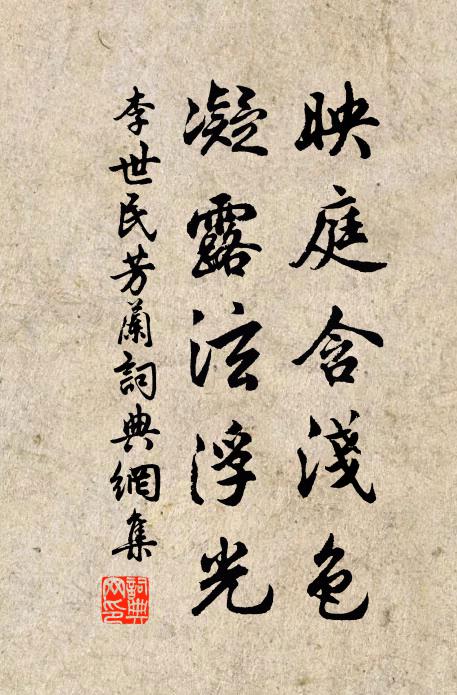 映庭含淺色
凝露泫浮光
李世民芳蘭詞典網集
詞典網印